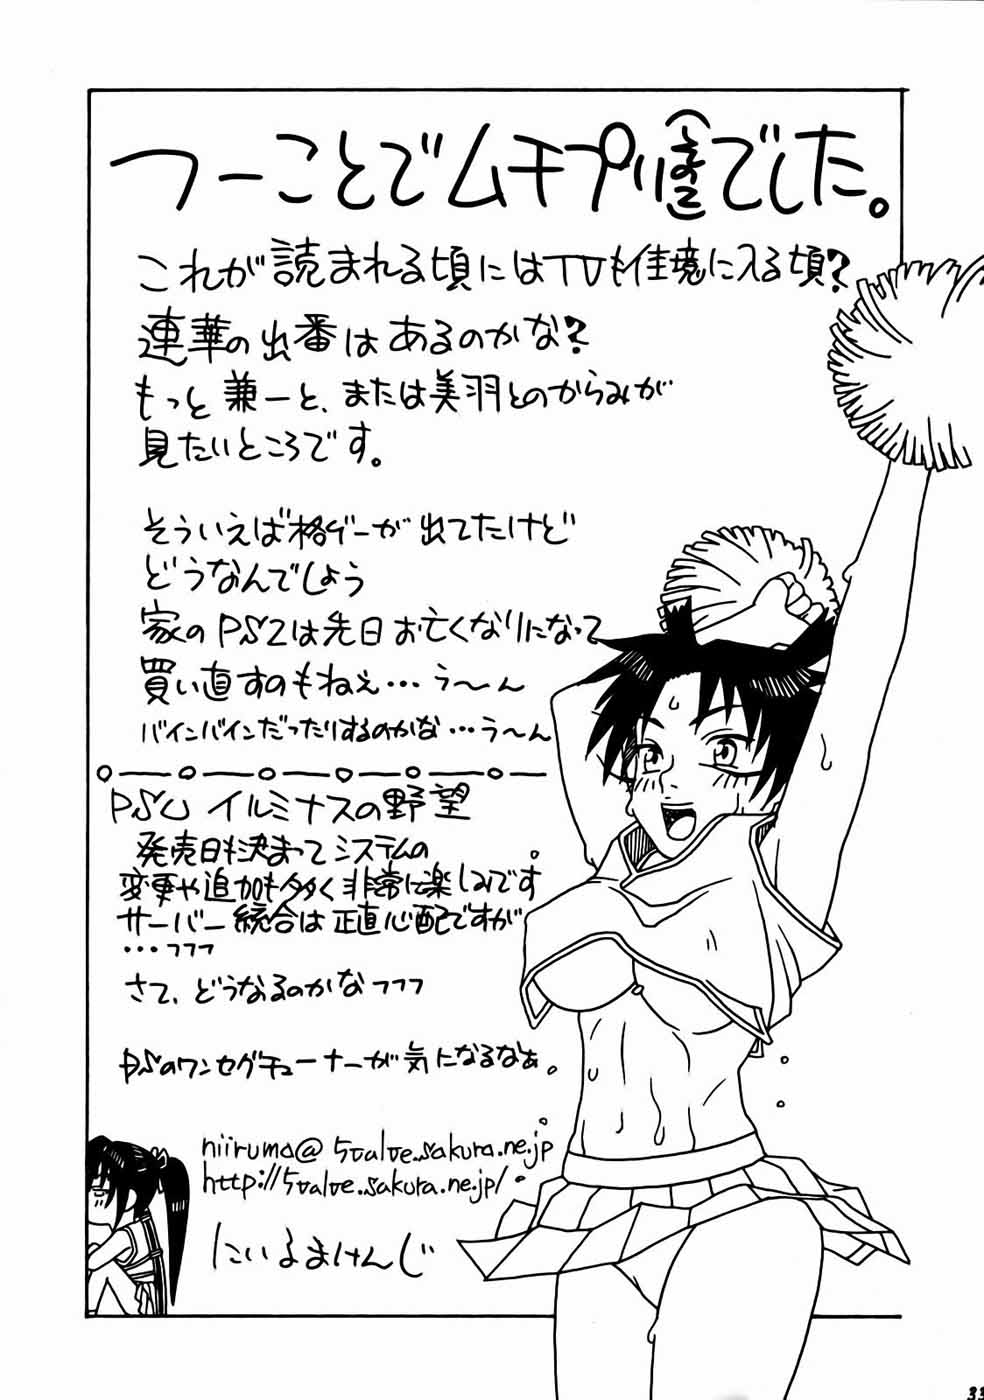 つーことでムチプリ でした。
これが読まれる頃にはTVも佳境に入る頃？
連華の出番はあるのかな？
もっと兼一と、または美羽とのからみが
見たいところです。
そういえば格ゲーが出てたけど
どうなんでしょう
家のPS2は先日お亡くなりになって
買い直すのもねぇ…う〜ん
バインバインだったりするのかな…う〜ん
PSU イルミナスの野望
発売日も決まってシステムの
変更や追加も多く非常に楽しみです。
サーバー統合は正直心配ですが
…フフフ
さて、どうなるのかなフフフ
PSのワンセグチューナーが気になるなぁ。
niiruma@5valve.sakura.ne.jp
http://5valve.sakura.ne.jp/
にいるまけんじ
33